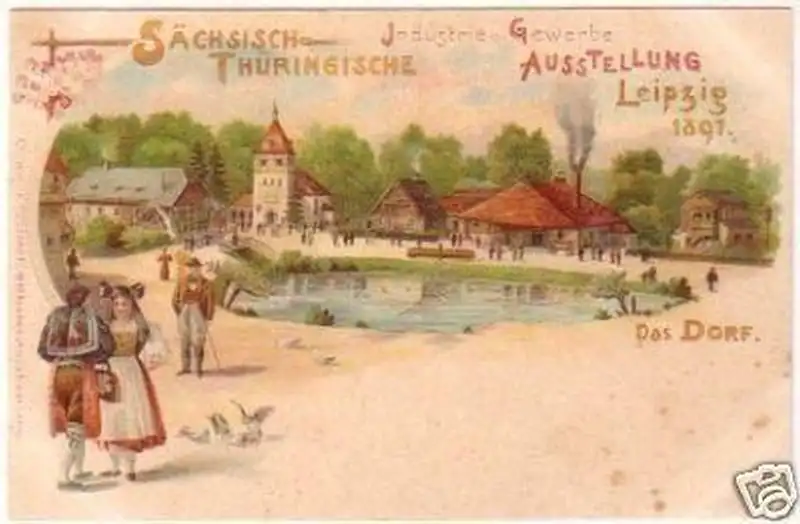 SÄCHSISCH-
THÜRINGISCHE
Industrie u. Gewerbe
AUSSTELLUNG
Leipzig
1897.
Das DORF.